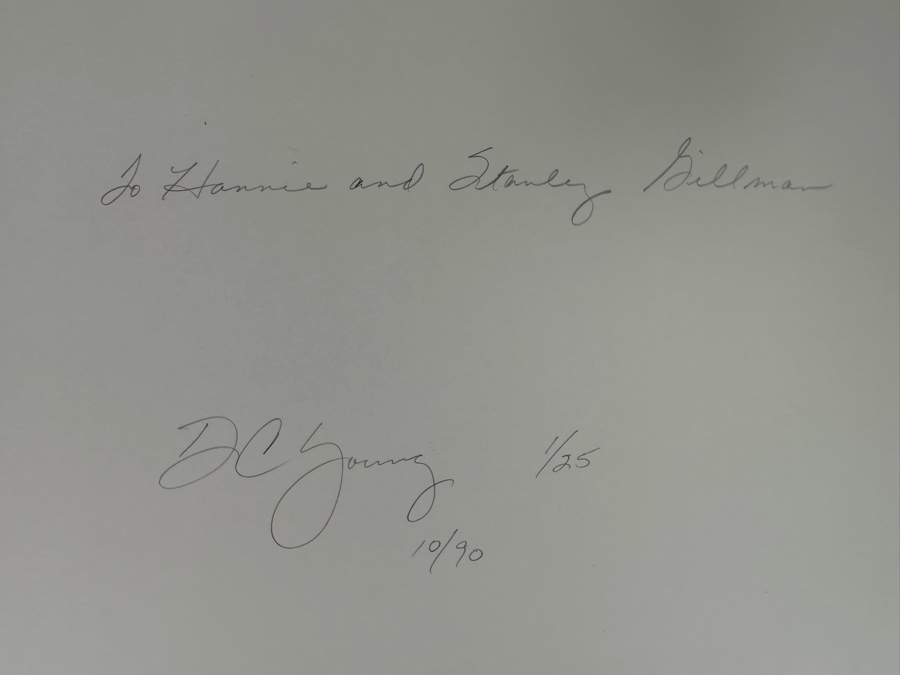 To Hannie and Stanley Gillman
DC Young 1/25
10/90